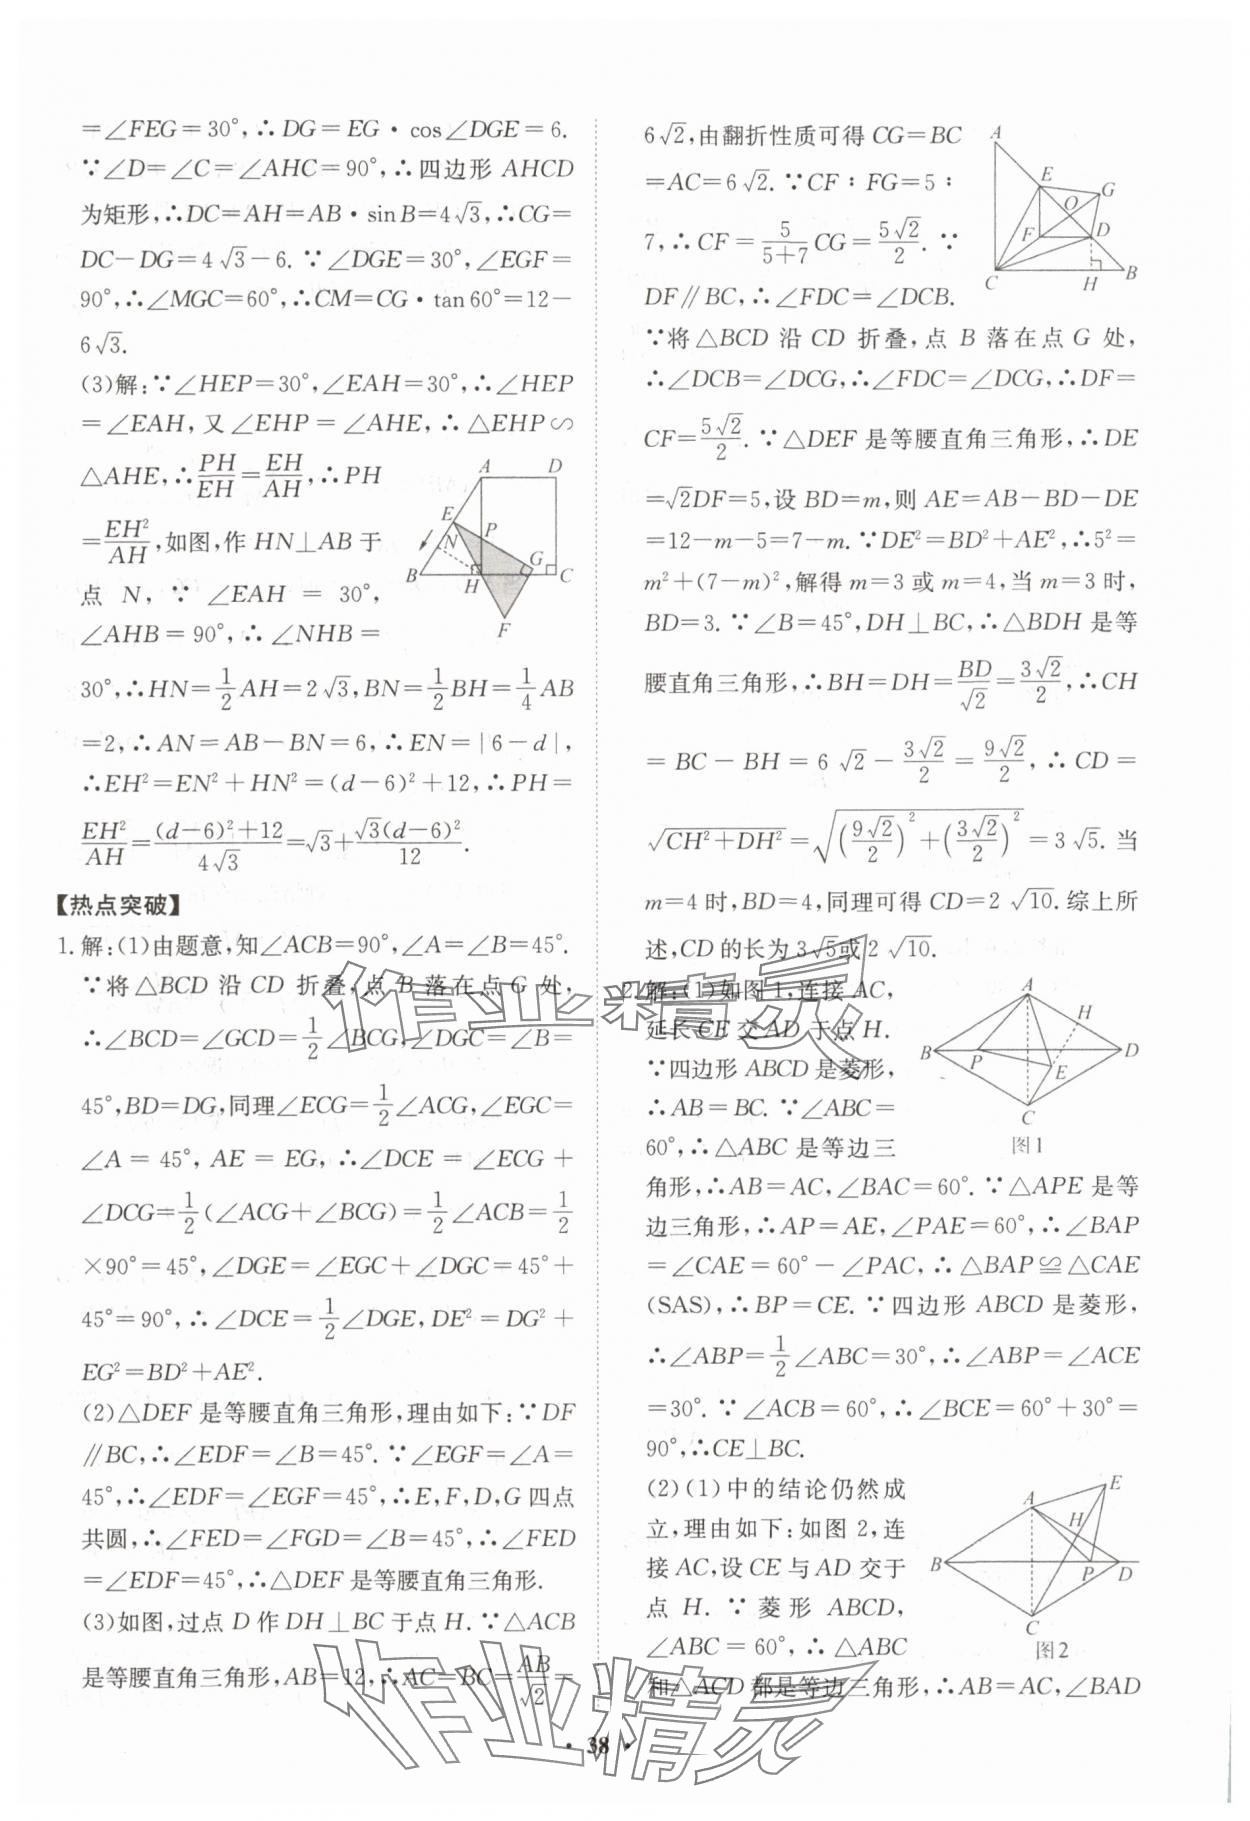 =∠FEG=30°,∴DG=EG·cos∠DGE=6.
∵∠D=∠C=∠AHC=90°,∴四边形 AHCD
为矩形,∴DC=AH=AB·sinB=4√3,∴CG=
DC−DG=4√3−6.∵∠DGE=30°,∠EGF=
90°,∴∠MGC=60°,∴CM=CG·tan60°=12−
6√3.
(3)解:∵∠HEP=30°,∠EAH=30°,∴∠HEP
=∠EAH,又∠EHP=∠AHE,∴△EHP∽
△AHE,∴PH/EH=EH/AH,∴PH
=EH²/AH,如图,作 HN⊥AB 于
点 N,∵∠EAH=30°,
∠AHB=90°,∴∠NHB=
30°,∴HN=1/2AH=2√3,BN=1/2BH=1/4AB
=2,∴AN=AB−BN=6,∴EN=|6−d|,
∴EH²=EN²+HN²=(d−6)²+12,∴PH=
EH²/AH=((d−6)²+12)/(4√3)=√3+(√3(d−6)²)/12.
A D
E
N P
G
B H C
F
【热点突破】
1.解:(1)由题意,知∠ACB=90°,∠A=∠B=45°.
∵将△BCD 沿 CD 折叠,点 B 落在点 G 处,
∴∠BCD=∠GCD=1/2∠BCG,∠DGC=∠B=
45°,BD=DG,同理∠ECG=1/2∠ACG,∠EGC=
∠A=45°,AE=EG,∴∠DCE=∠ECG+
∠DCG=1/2(∠ACG+∠BCG)=1/2∠ACB=1/2
×90°=45°,∠DGE=∠EGC+∠DGC=45°+
45°=90°,∴∠DCE=1/2∠DGE,DE²=DG²+
EG²=BD²+AE².
(2)△DEF 是等腰直角三角形,理由如下:∵DF
∥BC,∴∠EDF=∠B=45°.∵∠EGF=∠A=
45°,∴∠EDF=∠EGF=45°,∴E,F,D,G 四点
共圆,∴∠FED=∠FGD=∠B=45°,∴∠FED
=∠EDF=45°,∴△DEF 是等腰直角三角形.
(3)如图,过点 D 作 DH⊥BC 于点 H.∵△ACB
是等腰直角三角形,AB=12,∴AC=BC=AB/√2=
6√2,由翻折性质可得 CG=BC
=AC=6√2.∵CF∶FG=5∶
7,∴CF=5/(5+7)CG=5√2/2.∵
DF∥BC,∴∠FDC=∠DCB.
A
E
G
O
F D
C H B
∵将△BCD 沿 CD 折叠,点 B 落在点 G 处,
∴∠DCB=∠DCG,∴∠FDC=∠DCG,∴DF=
CF=5√2/2.∵△DEF 是等腰直角三角形,∴DE
=√2DF=5,设 BD=m,则 AE=AB−BD−DE
=12−m−5=7−m.∵DE²=BD²+AE²,∴5²=
m²+(7−m)²,解得 m=3 或 m=4,当 m=3 时,
BD=3.∵∠B=45°,DH⊥BC,∴△BDH 是等
腰直角三角形,∴BH=DH=BD/√2=3√2/2,∴CH
=BC−BH=6√2−3√2/2=9√2/2,∴CD=
√(CH²+DH²)=√((9√2/2)²+(3√2/2)²)=3√5.当
m=4 时,BD=4,同理可得 CD=2√10.综上所
述,CD 的长为 3√5或 2√10.
2.解:(1)如图 1,连接 AC,
延长 CE 交 AD 于点 H.
∵四边形 ABCD 是菱形,
∴AB=BC.∵∠ABC=
60°,∴△ABC 是等边三
A
H
B P E D
C
图1
角形,∴AB=AC,∠BAC=60°.∵△APE 是等
边三角形,∴AP=AE,∠PAE=60°,∴∠BAP
=∠CAE=60°−∠PAC,∴△BAP≌△CAE
(SAS),∴BP=CE.∵四边形 ABCD 是菱形,
∴∠ABP=1/2∠ABC=30°,∴∠ABP=∠ACE
=30°.∵∠ACB=60°,∴∠BCE=60°+30°=
90°,∴CE⊥BC.
(2)(1)中的结论仍然成
立,理由如下:如图 2,连
接 AC,设 CE 与 AD 交于
点 H.∵菱形 ABCD,
∠ABC=60°,∴△ABC
A E
H
B P D
C
图2
和△ACD 都是等边三角形,∴AB=AC,∠BAD
·38·
作业精灵
作业精灵